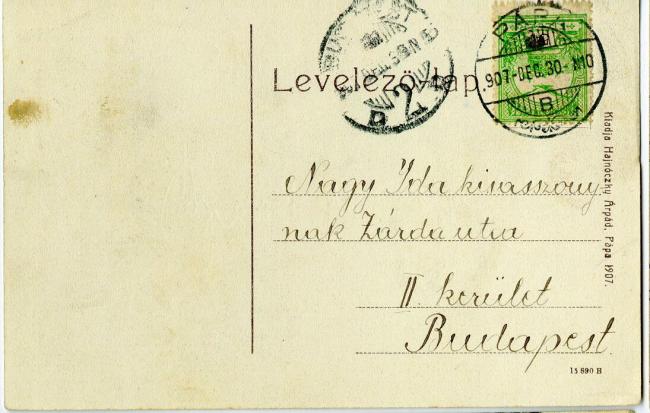 Levelező-lap.
PÁPA
907-DEC.30-N10
B
Nagy Ida kisasszony-
nak Zárda utca
II kerület
Budapest
Kiadja Hajnóczky Árpád, Pápa 1907.
15 890 B